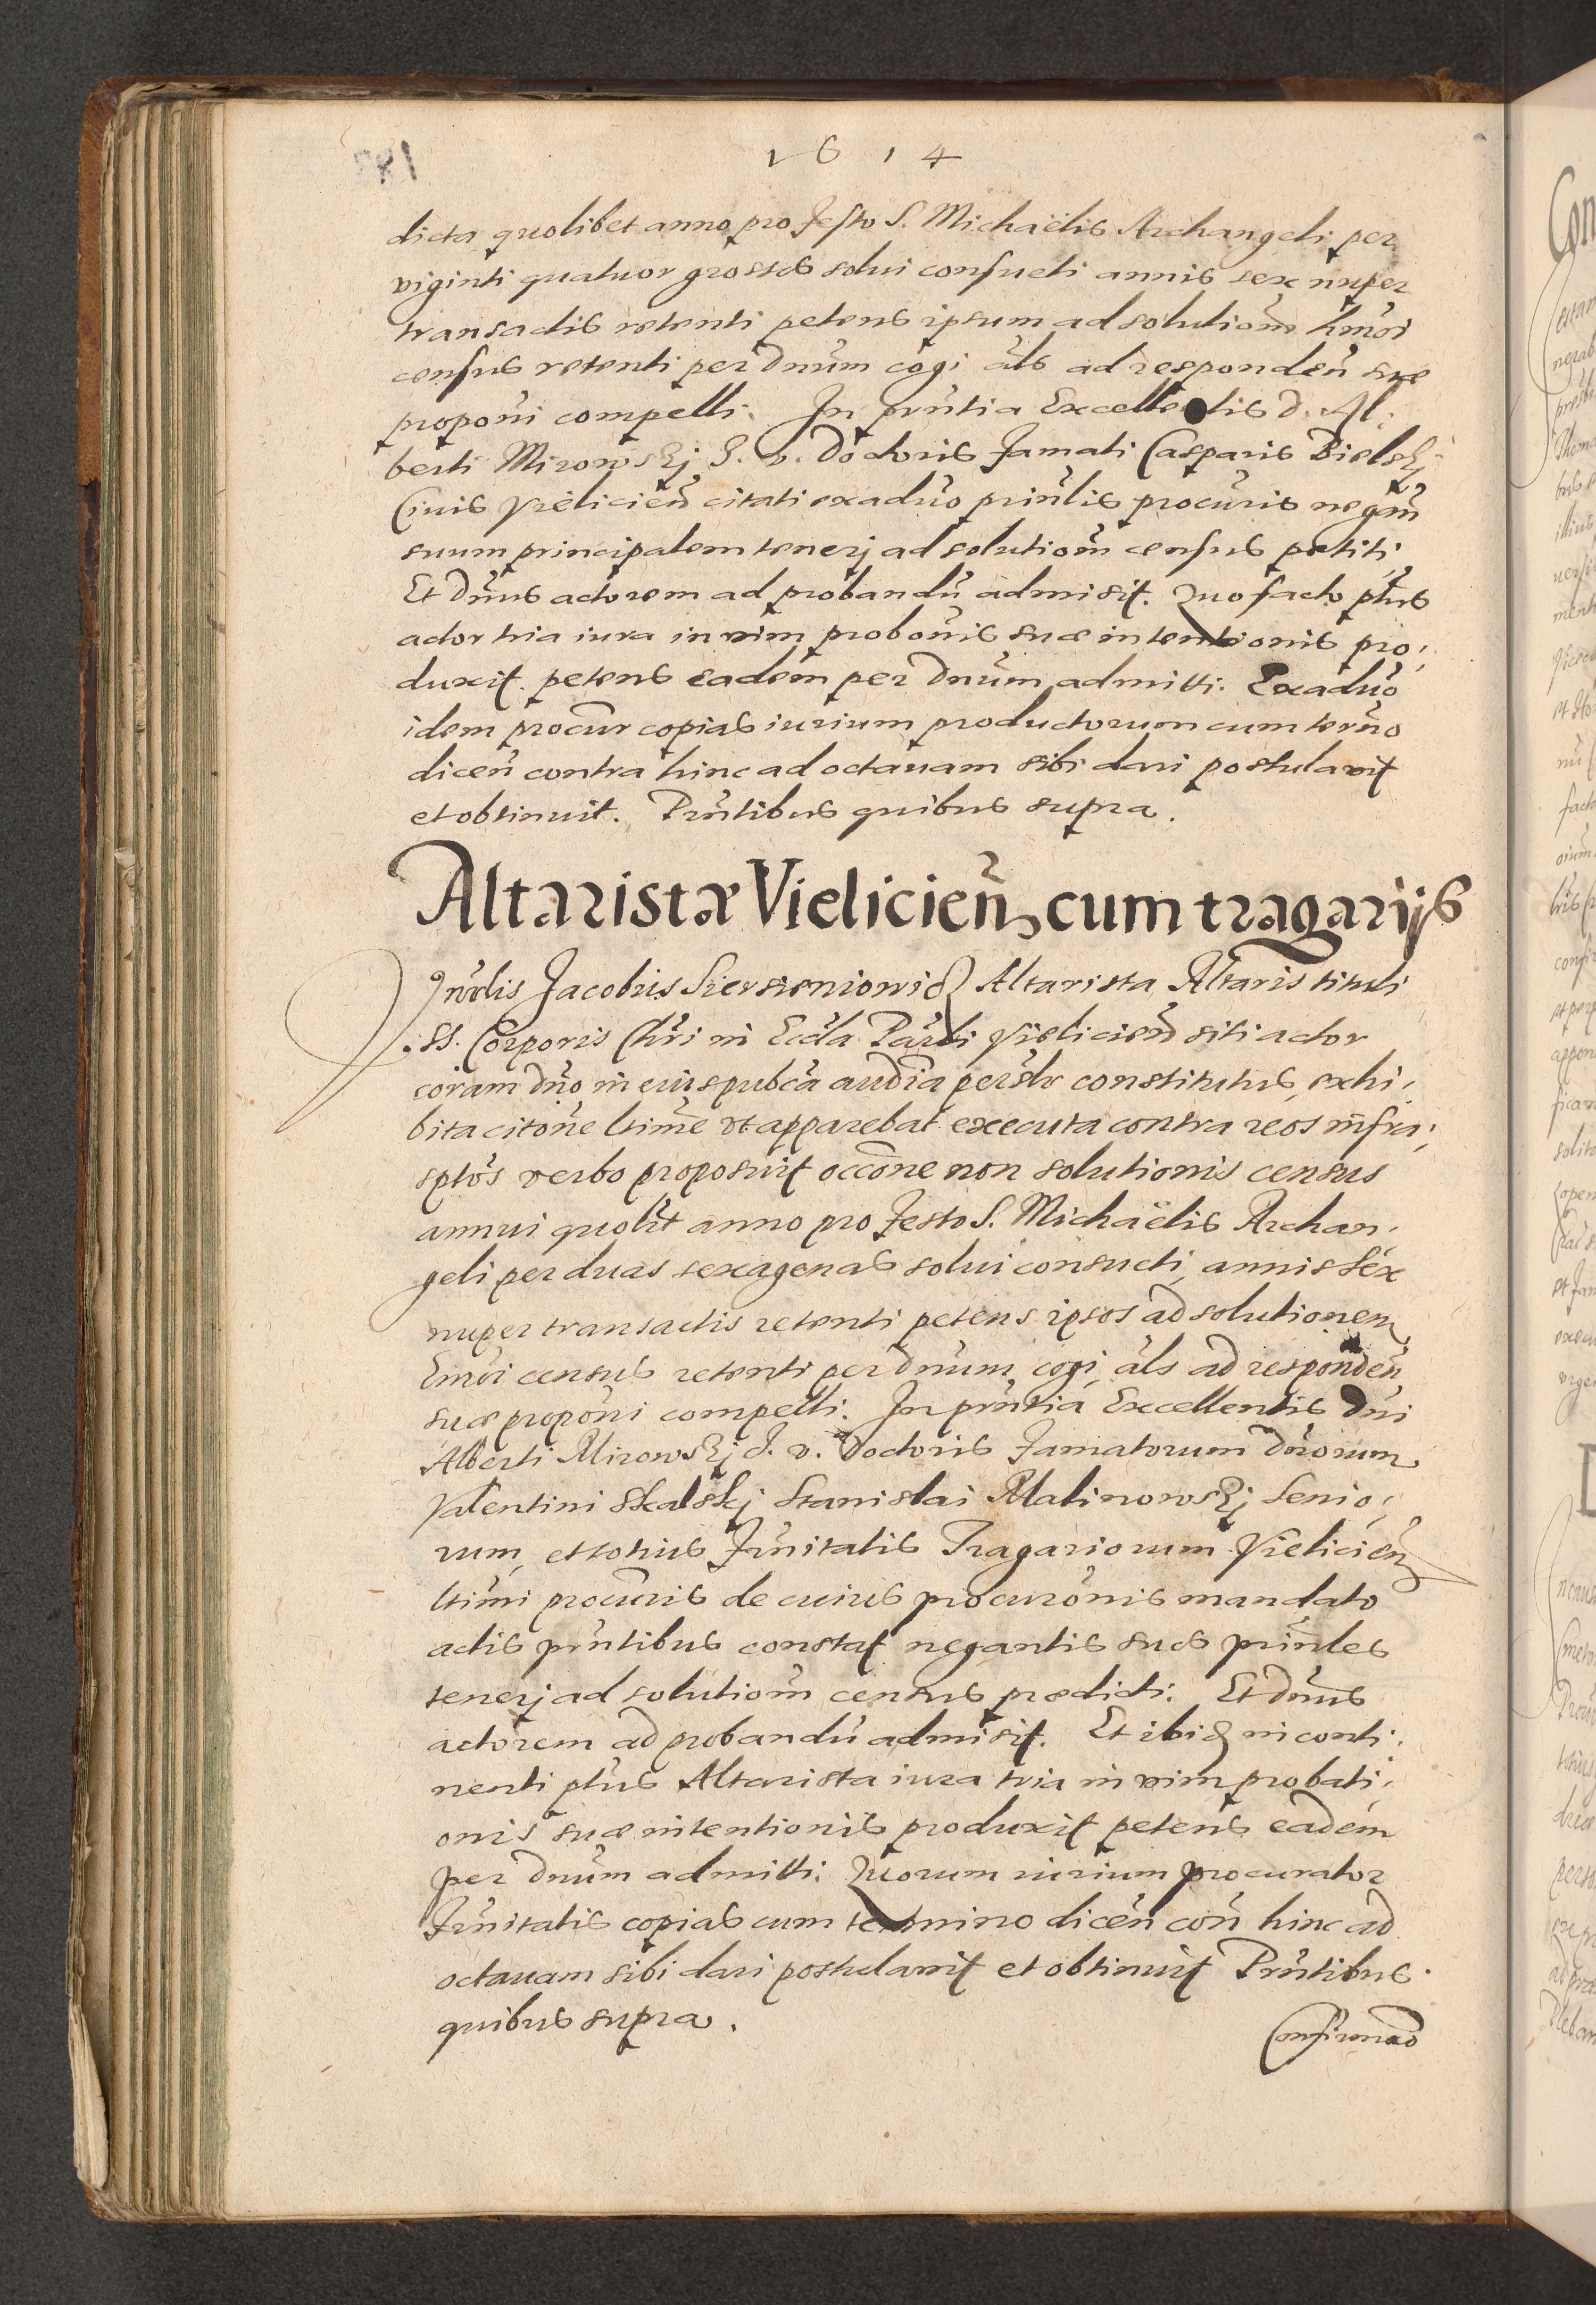 1614
dicta quolibet anno pro festo S. Michaëlis Archangeli per
viginti quatuor grossos solui consueti annis sex nuper
transactis retenti petens ipsum ad solutiom̃ hm̃oi
census retenti per Dnũm cogi al̃s ad responden̄ suæ
proponĩ compelli. In pñtia Excellentis D. Al:
berti Mirowskj J. v. Doctoris famati Casparis Bielskj
Ciuis Vielicien̄ citati ex aduõ prinl̃is procuris̃ negan̄
suum principalem tenerj ad solutiom̃ census petiti,
Et Dnũs actorem ad probandũ admisit. Quo facto pt̃us
actor tria iura in vim probonĩs suæ intentionis pro:
duxit. petens eadem per Dnũm admitti. Ex aduõ
idem procur̃ copias iurium productorum cum term̃o
dicen̄ contra hinc ad octauam sibi dari postulauit
et obtinuit. Pñtibus quibus supra.
Altaristæ Vielicien̄ cum tragarijs
Jacobus Altarista Altaris tituli
SS. Corporis Chr̃i in Eccl̃a Paĩli Vielicien̄ siti actor
coram dño in eius pubcã aud̃ia persl̃r constitutus, exhi:
bita citonẽ ltimẽ vt apparebat executa contra reos infra:
sptõs verbo proposuit occonẽ non solutionis census
annui quolt̃ anno pro festo S. Michaëlis Archan:
geli per duas sexagenas solui consueti, annis sex
nuper transactis retenti petens ipsos ad solutionem
hm̃oi census retenti per Dnũm cogi, al̃s ad responden̄
suæ proponĩ compelli. In pñtia Excellentis Dñi
Alberti Mirowskj J. v. Doctoris famatorum Dnõrum
Valentini Skalskj Stanislai Malinowskj senio:
rum, et totius frñitatis Tragariorum Vielicien̄
ltimĩ procuris̃ de cuius procuronĩs mandato
actis pñtibus constat negantis suos prinl̃es
tenerj ad solutiom̃ census prædicti. Et Dnũs
actorem ad probandũ admisit. Et ibid̃ in conti:
nenti pt̃us Altarista iura tria in vim probati:
onis suæ intentionis produxit petens eadem
per Dnũm admitti. Quorum iurium procurator
frñitatis copias cum termino dicen̄ con̄ hinc ad
octauam sibi dari postulauit et obtinuit Pñtibus
quibus supra.
Confirmaõ